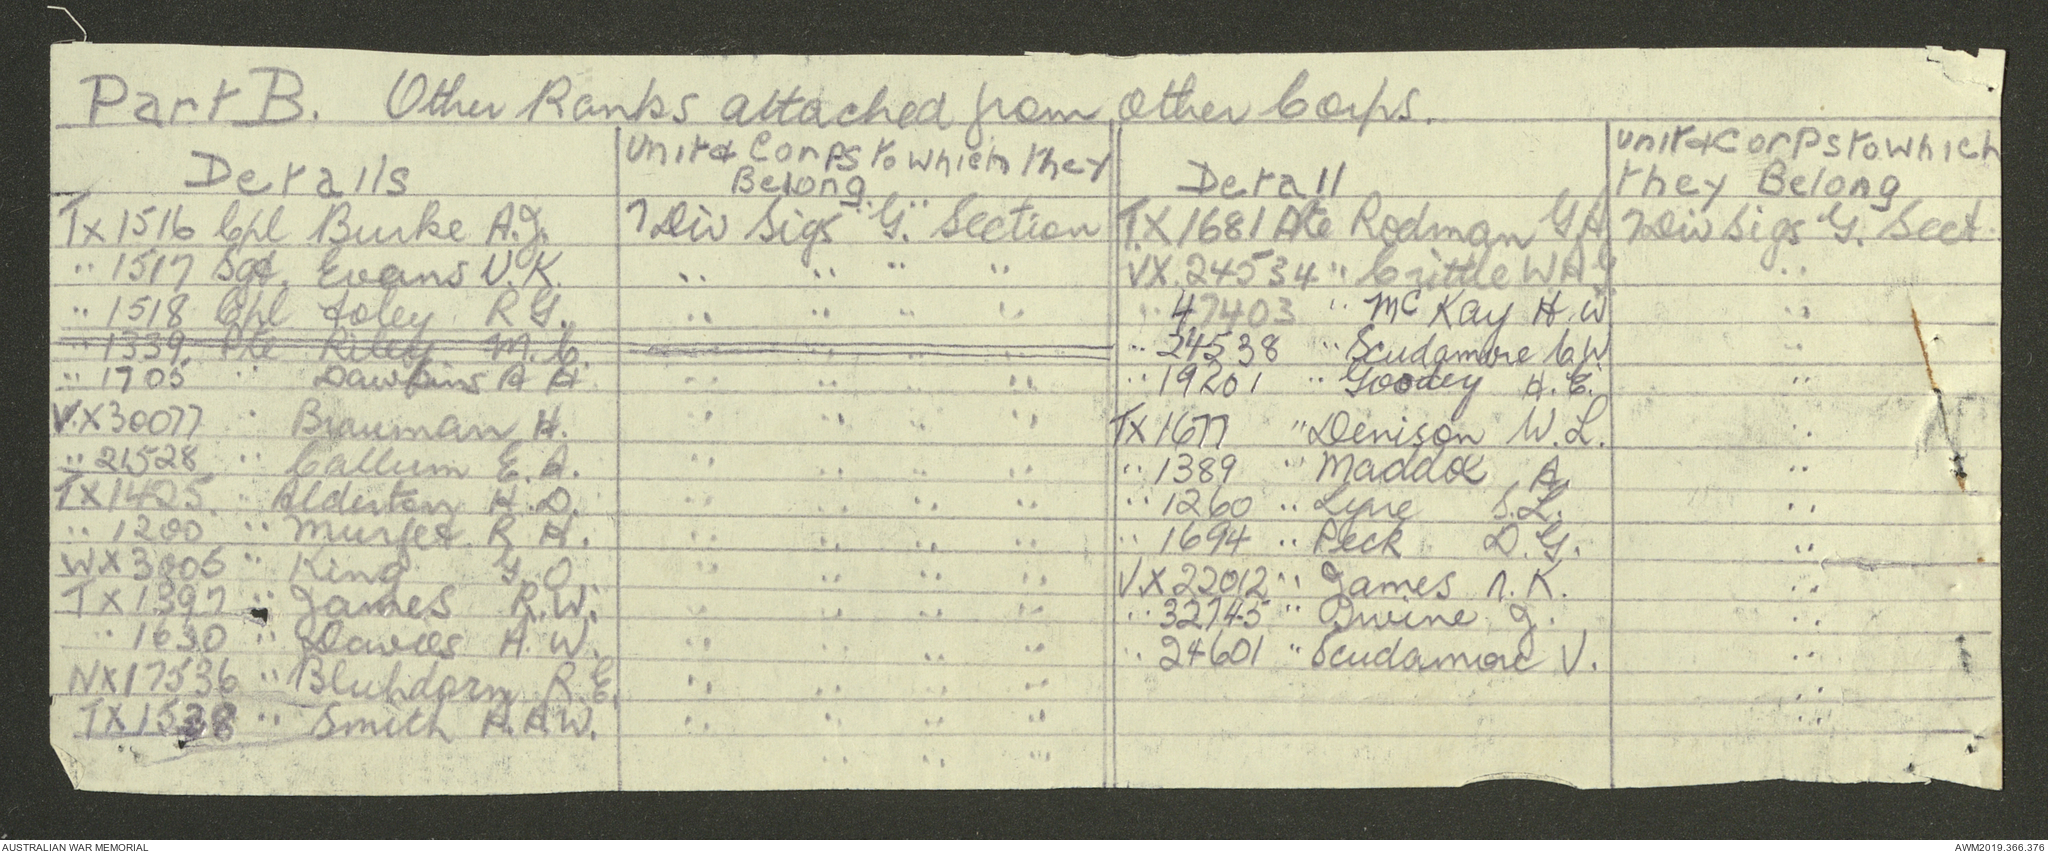 Part B. Other Ranks attached from other Corps.
Details
Unit & Corps to which they
Belong
TX1516 Cpl Burke A.J. 7 Div Sigs "G." Section
" 1517 Sgt. Evans V.K. " " " "
" 1518 Cpl Foley R G. " " " "
" 1339 Pte Riley M.C. " " " "
" 1705 " Dawkins A A " " " "
V.X30077 " Brauman H. " " " "
" 21528 " Callum E.A. " " " "
TX1425 " Alderton H.D. " " " "
" 1200 " Murfet R H. " " " "
WX3005 " King G O " " " "
TX1397 " James R.W. " " " "
" 1630 " Davies A.W. " " " "
NX17536 " Bluhdorn R.E. " " " "
TX1538 " Smith A.A.W. " " " "
" " "
Detail
Unit & Corps to which
they Belong
T.X1681 Pte Rodman G A 7 Div Sigs G. Sect.
VX.24534 " Crittle W A J. "
" 47403 " McKay H.W "
" 24538 " Scudamore C W "
" 19201 " Goodey H.E. "
TX1677 " Denison W.L. "
" 1389 " Maddox A. "
" 1260 " Lyne S.L. "
" 1694 " Peck D.G. "
V.X22012 " James N.K. "
" 32745 " Irvine J. "
" 24601 " Scudamore V. "
"
"
AUSTRALIAN WAR MEMORIAL
AWM2019.366.376